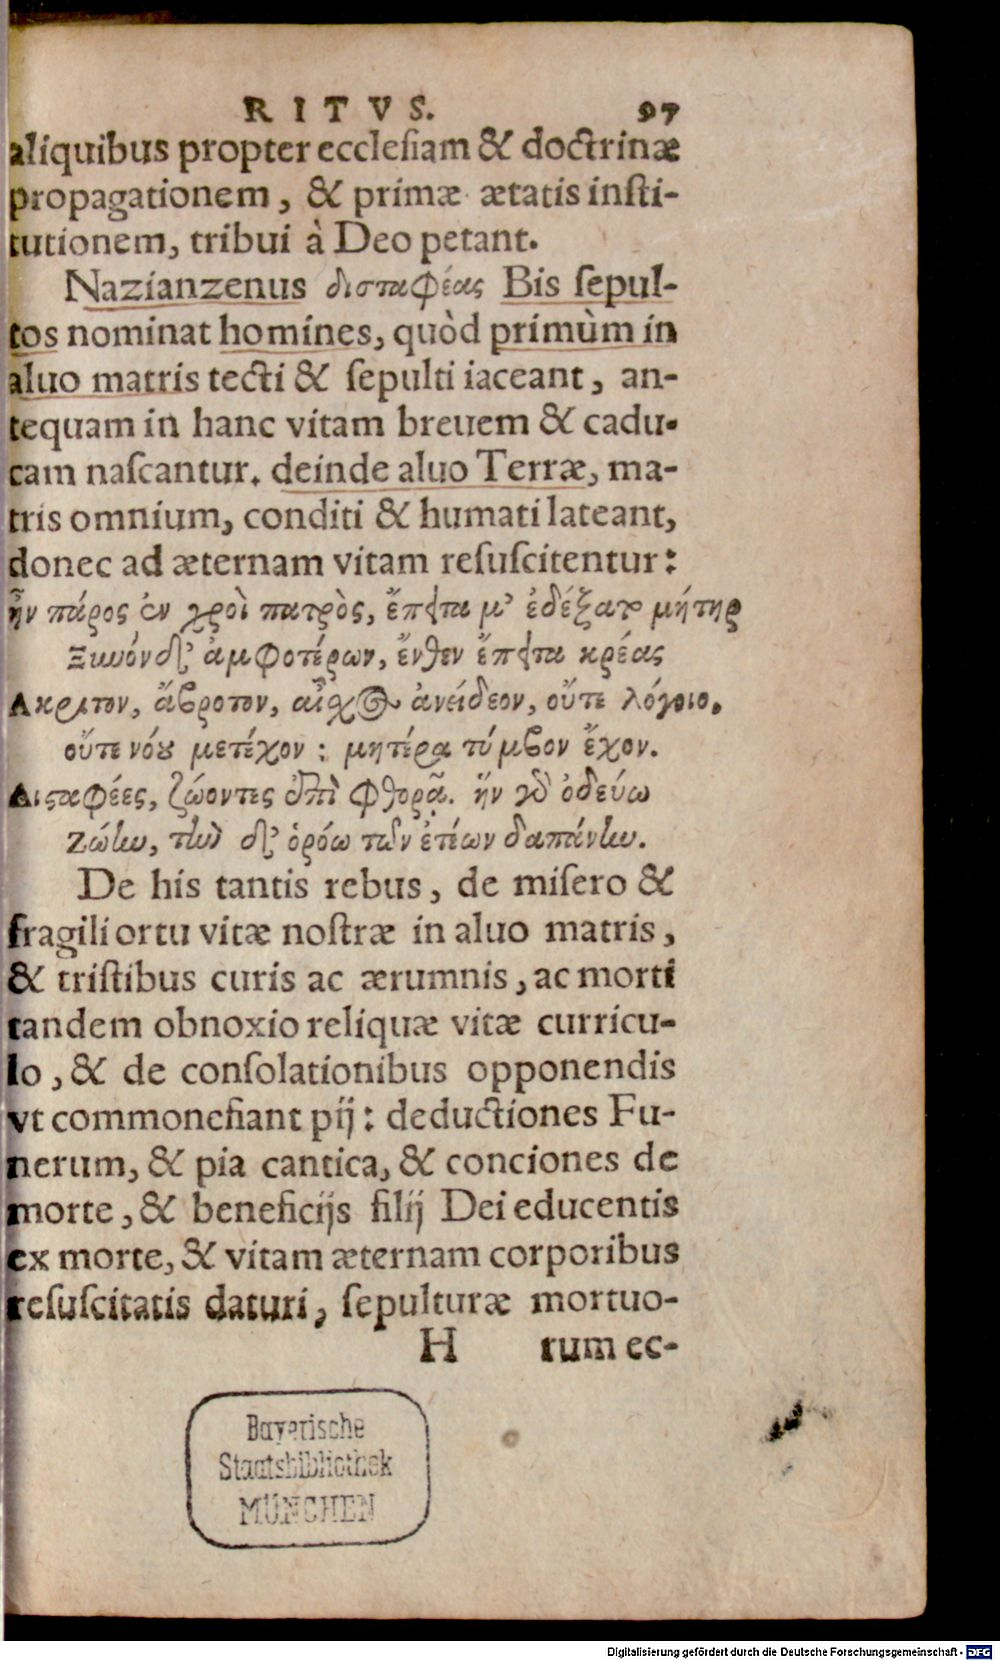 RITVS. 97
aliquibus propter ecclesiam & doctrinæ
propagationem, & primæ ætatis insti-
tutionem, tribui à Deo petant.
Nazianzenus δισταφέας Bis sepul-
tos nominat homines, quòd primùm in
aluo matris tecti & sepulti iaceant, an-
tequam in hanc vitam breuem & cadu-
cam nascantur. deinde aluo Terræ, ma-
tris omnium, conditi & humati lateant,
donec ad æternam vitam resuscitentur:
ἦν πάρος ἐν χροῒ πατρὸς, ἔπειτα μ' ἐδέξατο μήτηρ
Ξυνόν δ' ἀμφοτέρων, ἔνθεν ἔπειτα κρέας
Ακριτον, ἄβροτον, αἶχος ἀνείδεον, οὔτε λόγοιο,
οὔτε νόου μετέχον : μητέρα τύμβον ἔχον.
Δισταφέες, ζώοντες ἐπὶ φθορᾷ. ἥν γὰρ ὁδεύω
Ζώην, τὴν δ' ὁρόω τῶν ἐτέων δαπάνην.
De his tantis rebus, de misero &
fragili ortu vitæ nostræ in aluo matris,
& tristibus curis ac ærumnis, ac morti
tandem obnoxio reliquæ vitæ curricu-
lo, & de consolationibus opponendis
vt commonefiant pij: deductiones Fu-
nerum, & pia cantica, & conciones de
morte, & beneficijs filij Dei educentis
ex morte, & vitam æternam corporibus
resuscitatis daturi, sepulturæ mortuo-
H rum ec-
Bayerische
Staatsbibliothek
MÜNCHEN
Digitalisierung gefördert durch die Deutsche Forschungsgemeinschaft - DFG